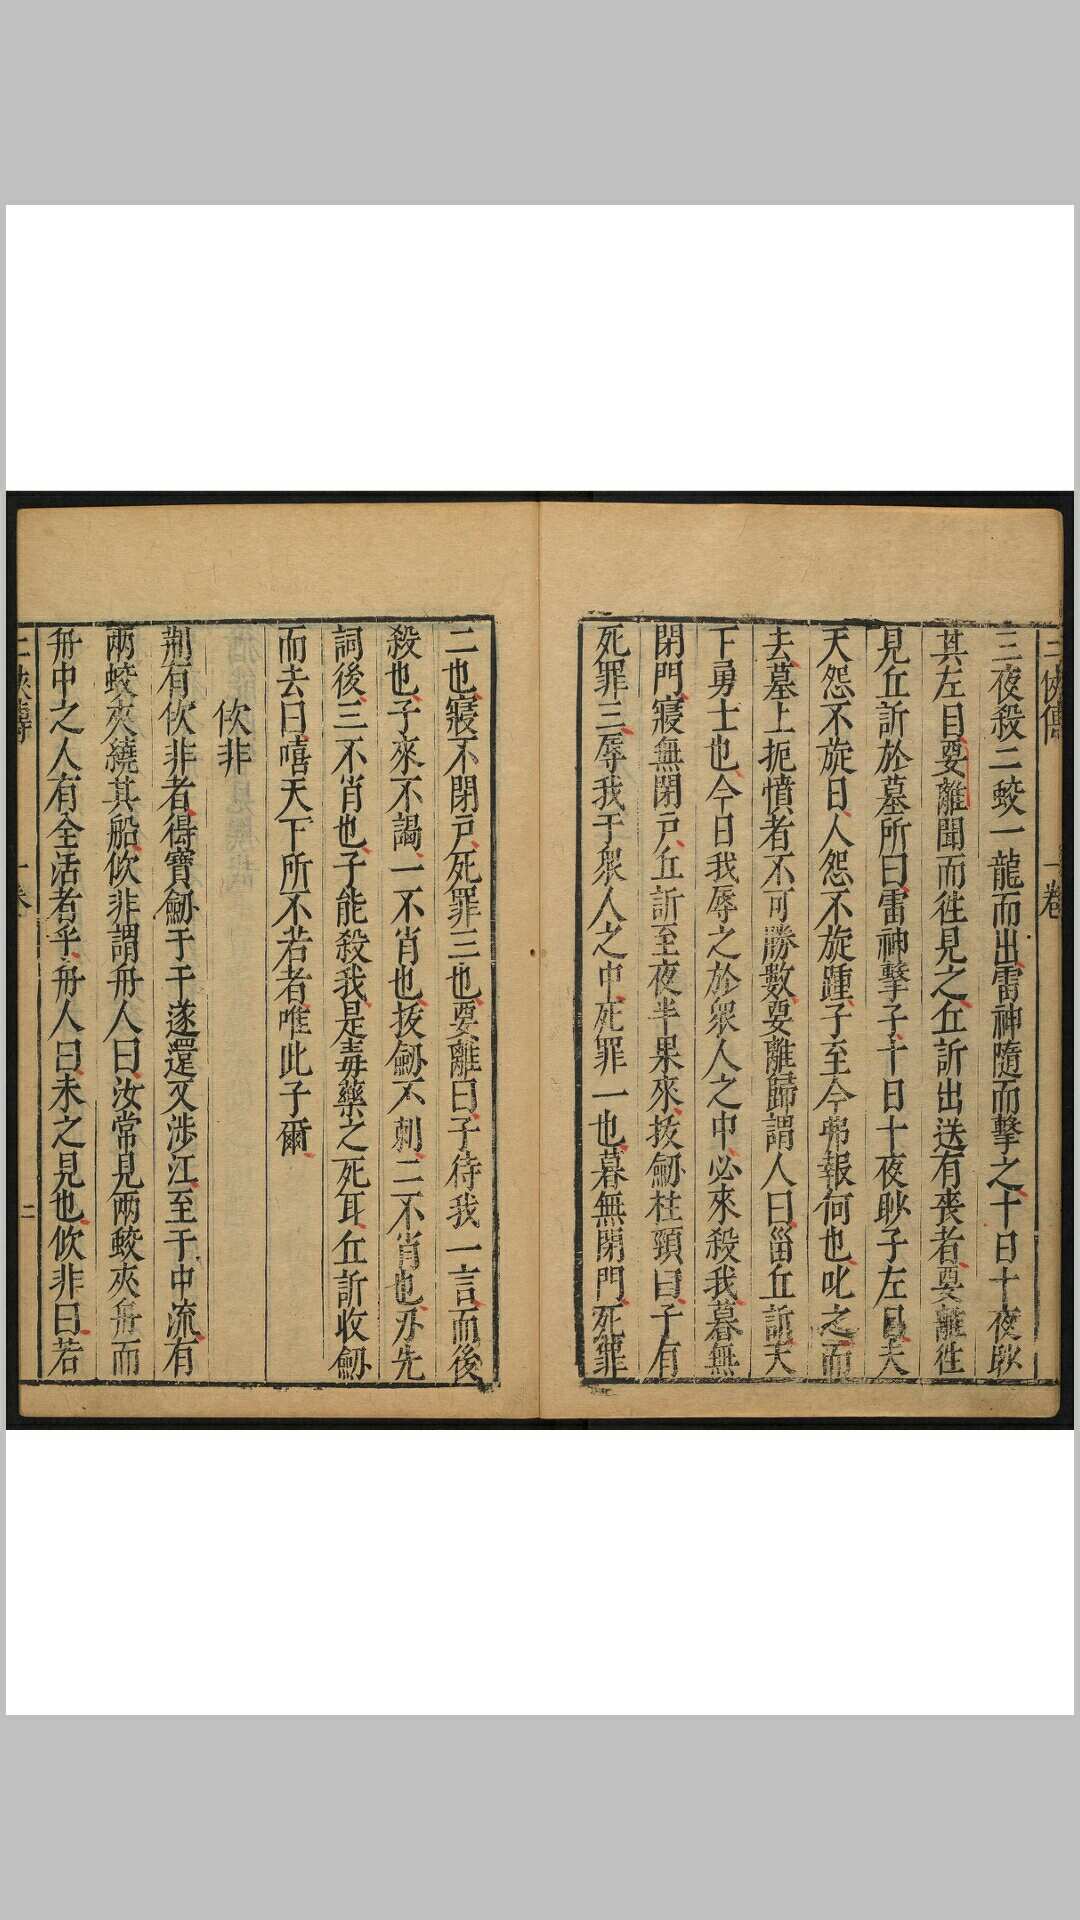 三夜殺二蛟一龍而出雷神隨而擊之十日十夜眇
其左目要離聞而徃見之丘訢出送有喪者要離徃
見丘訢於墓所曰雷神擊子十日十夜眇子左目夫
天怨不旋日人怨不旋踵子至今弗報何也叱之而
去墓上扼憤者不可勝數要離歸謂人曰甾丘訢天
下勇士也今日我辱之於眾人之中必來殺我暮無
閉門寢無閉戶丘訢至夜半果來拔劒柱頸曰子有
死罪三辱我于眾人之中死罪一也暮無閉門死罪
二也寢不閉戶死罪三也要離曰子待我一言而後
殺也子來不謁一不肖也拔劒不刺二不肖也刃先
詞後三不肖也子能殺我是毒藥之死耳丘訢收劒
而去曰嘻天下所不若者唯此子爾
佽非
荆有佽非者得寶劒于干遂還又涉江至于中流有
兩蛟夾繞其船佽非謂舟人曰汝常見兩蛟夾舟而
舟中之人有全活者乎舟人曰未之見也佽非曰若
二